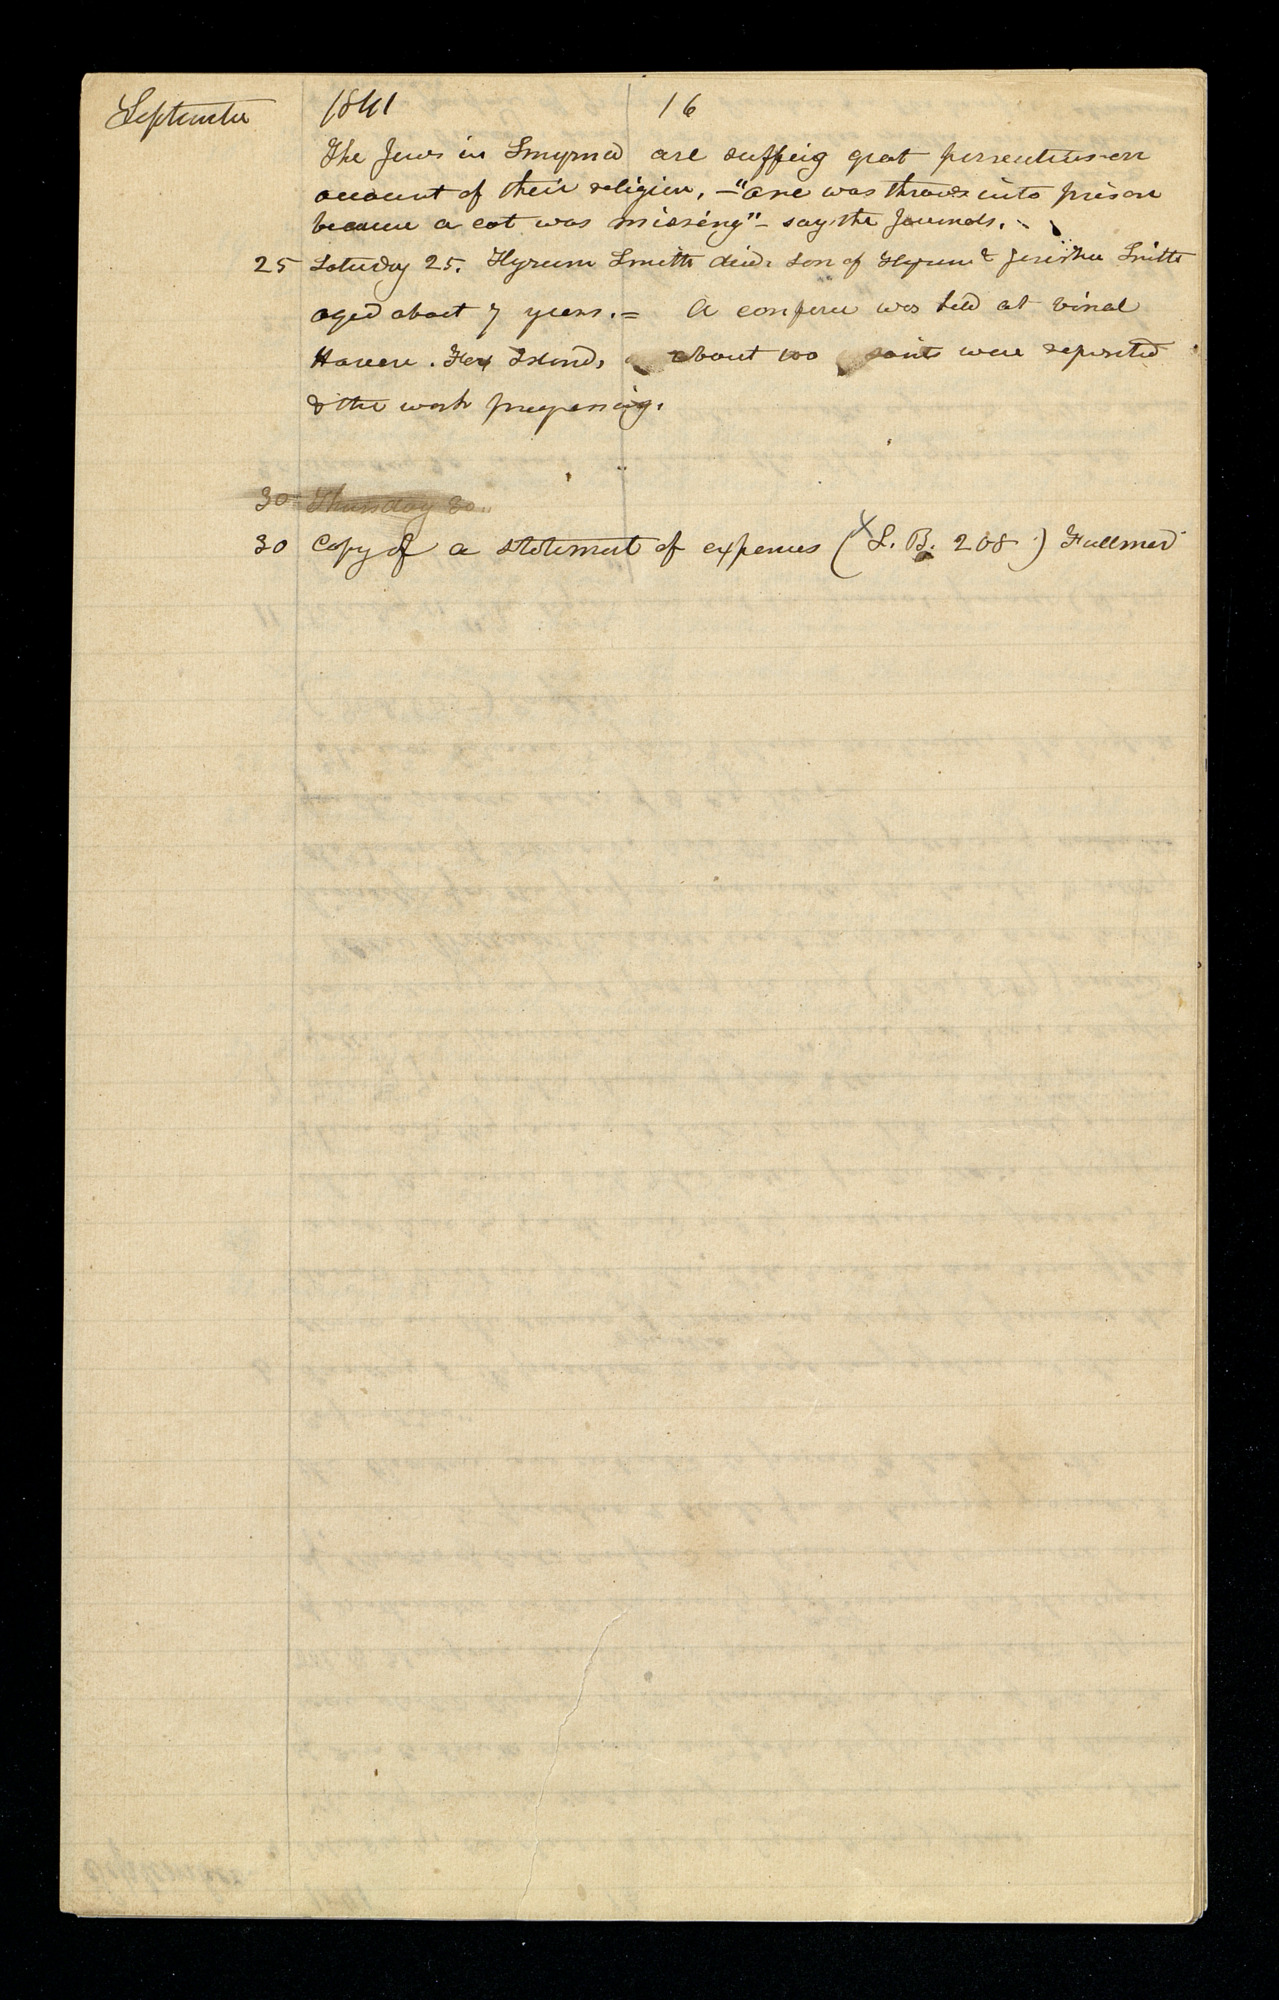 September 1841 16
The Jews in Smyrna are suffeig great persecution on
account of their religion, —"one was thrown into prison
because a cat was missing" — say the Journals.
25 Saturday 25. Hyrum Smith died. Son of Hyrum & Jerusha Smith
aged about 7 years. = A conferce was held at Vinal
Haven. Fox Island, about 100 saints were reported
& the work progressing.
30 Thursday 30.
30 Copy of a statement of expenses (X L. B. 208) Fullmer